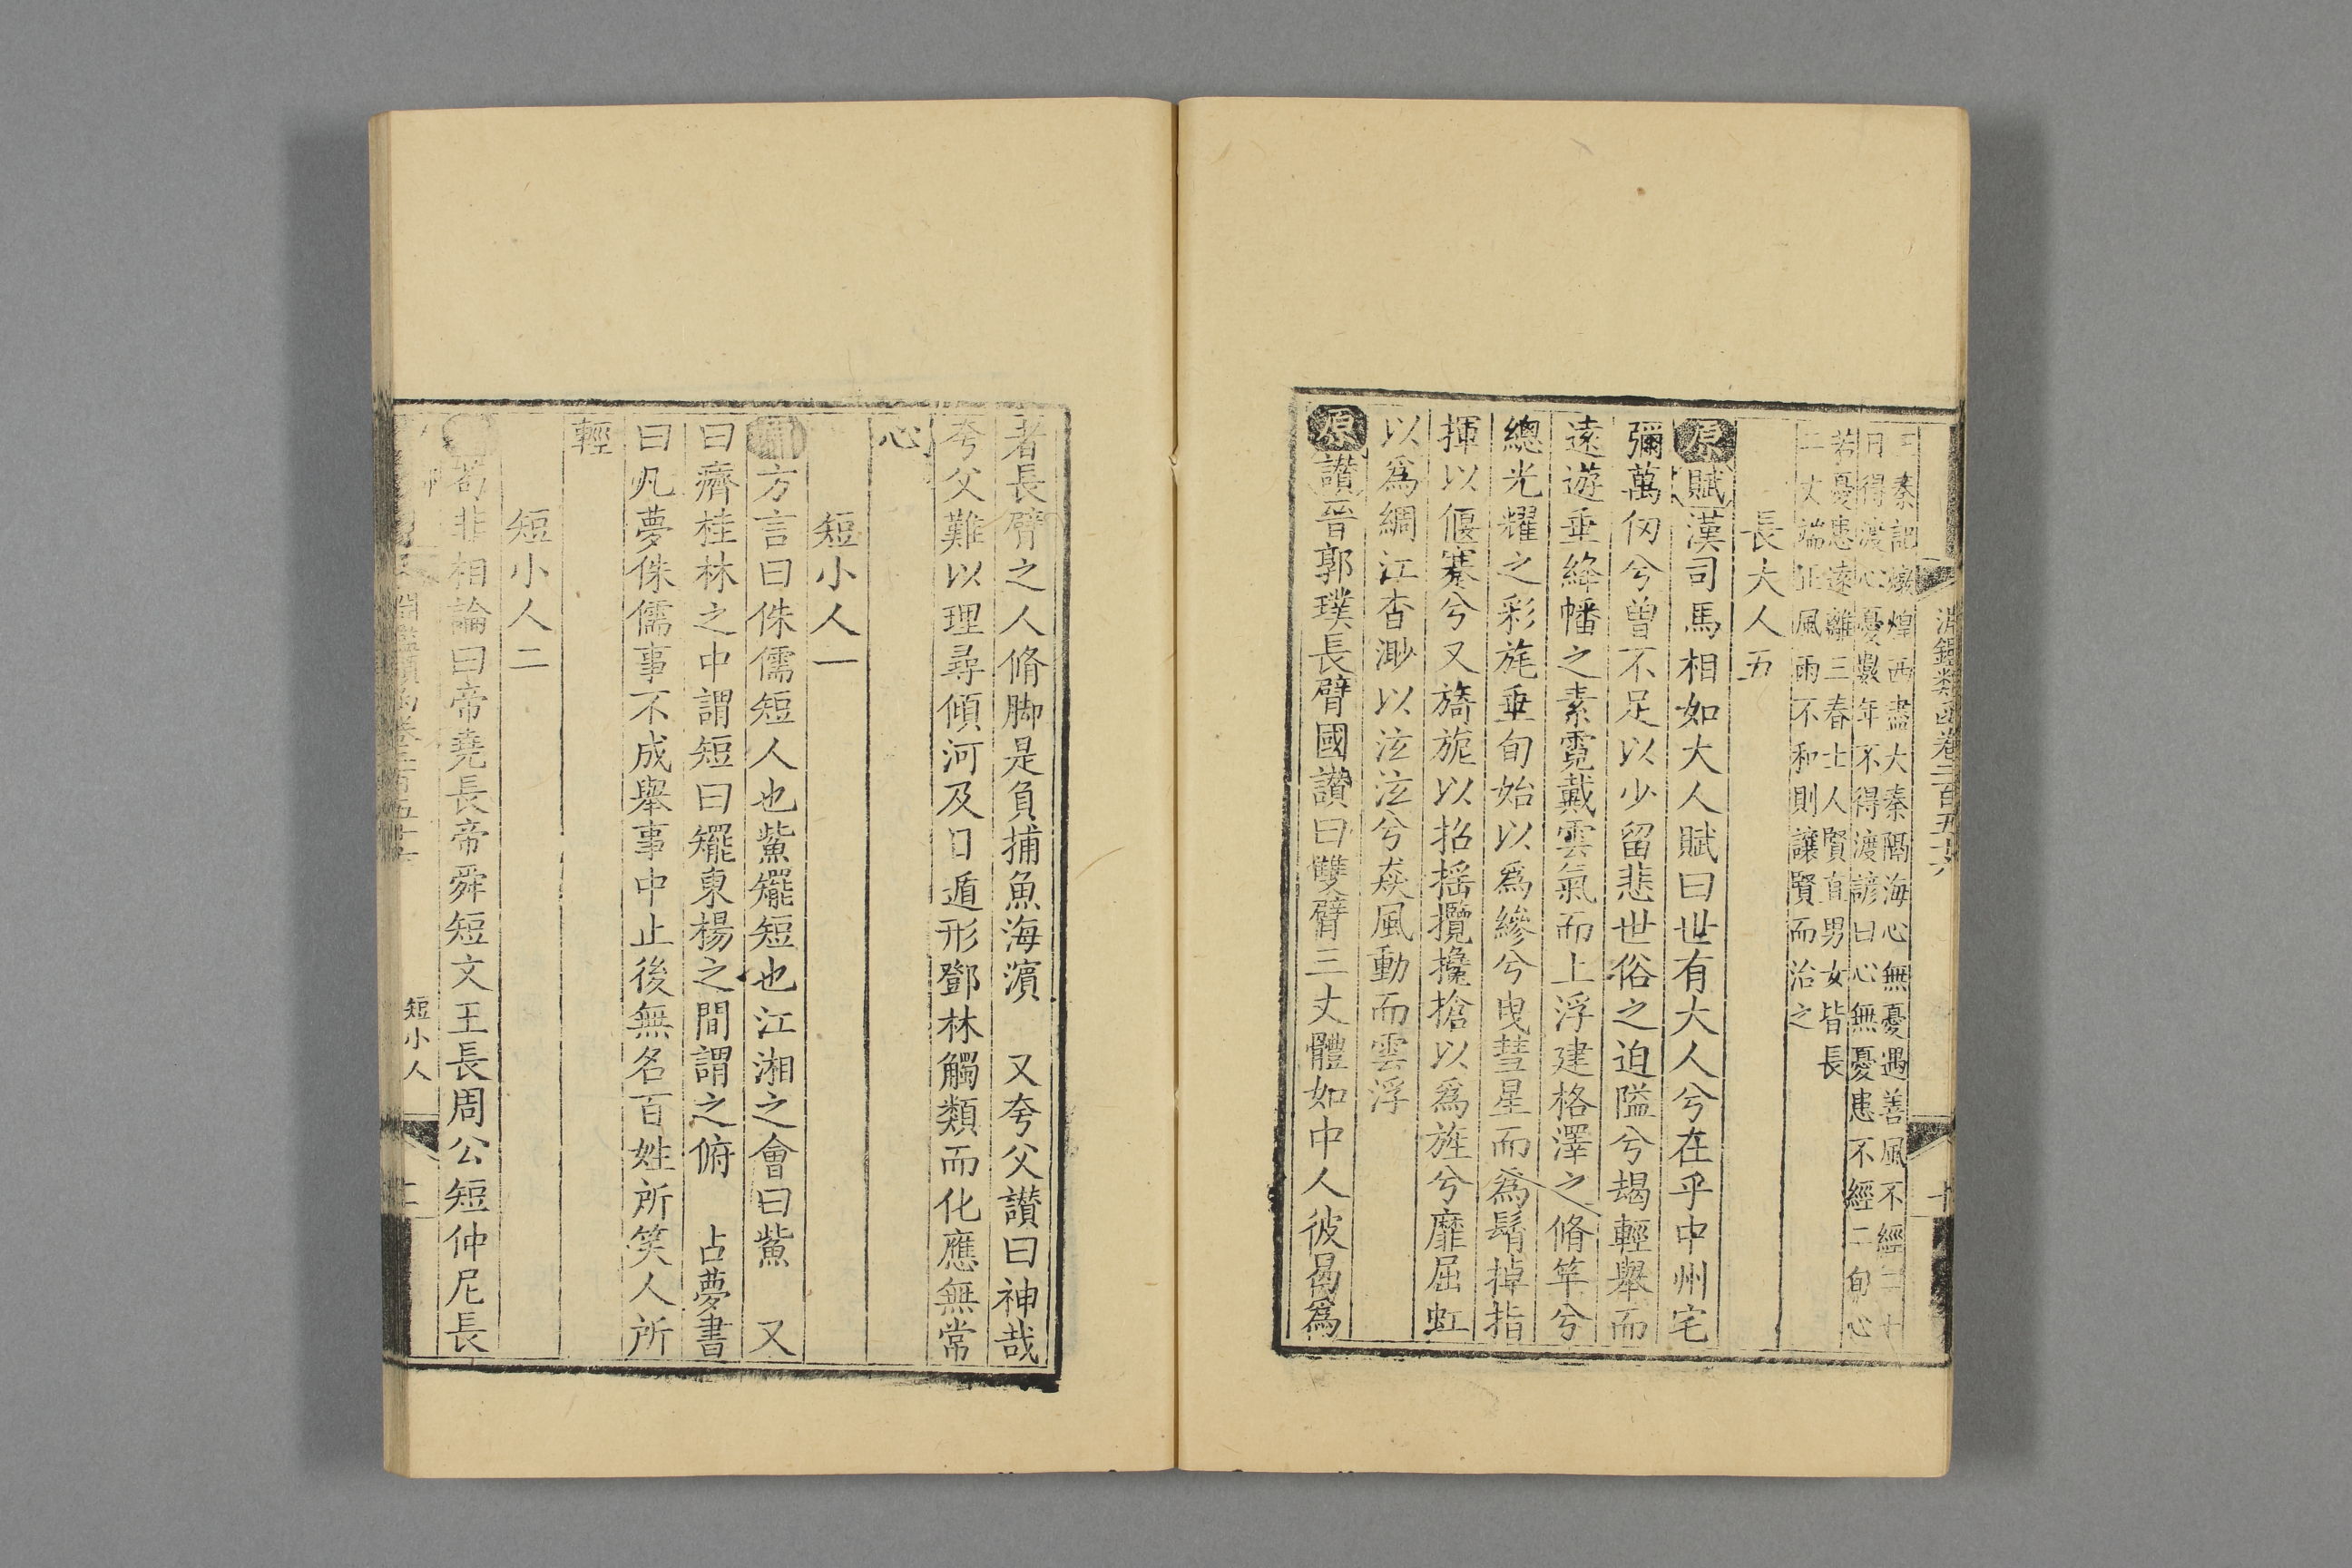 淵鑑類函卷二百五十六
三秦記燉煌西盡大秦隔海心無憂遇善風不經二十
日得渡心憂數年不得渡諺曰心無憂患不經二旬心
若憂患遠離三春士人賢直男女皆長
二丈端正風雨不和則讓賢而治之
長大人五
原賦漢司馬相如大人賦曰世有大人兮在乎中州宅
彌萬仞兮曾不足以少留悲世俗之迫隘兮朅輕舉而
遠遊垂絳幡之素霓戴雲氣而上浮建格澤之脩竿兮
總光耀之彩旄垂旬始以爲縿兮曳彗星而爲髾掉指
揮以偃蹇兮又旖旎以招搖攬攙搶以爲旌兮靡屈虹
以爲綢江杳渺以泫泫兮猋風動而雲浮
原讚晉郭璞長臂國讚曰雙臂三丈體如中人彼曷爲
者長臂之人脩脚是負捕魚海濱 又夸父讚曰神哉
夸父難以理尋傾河及日遁形鄧林觸類而化應無常
心
短小人一
方言曰侏儒短人也鮆䎱短也江湘之會曰鮆 又
曰癠桂林之中謂短曰䎱東楊之間謂之俯 占夢書
曰凡夢侏儒事不成舉事中止後無名百姓所笑人所
輕
短小人二
荀非相論曰帝堯長帝舜短文王長周公短仲尼長
短小人